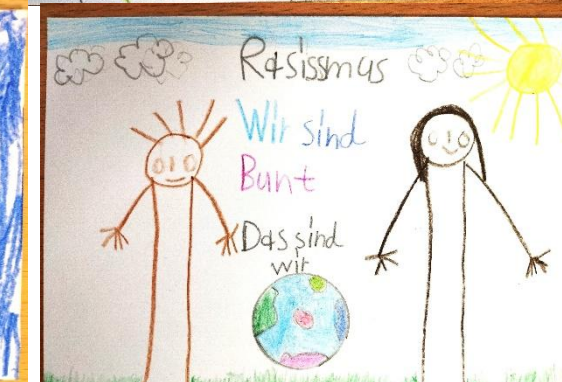 Rasissmus
Wir sind
Bunt
Das sind
wir